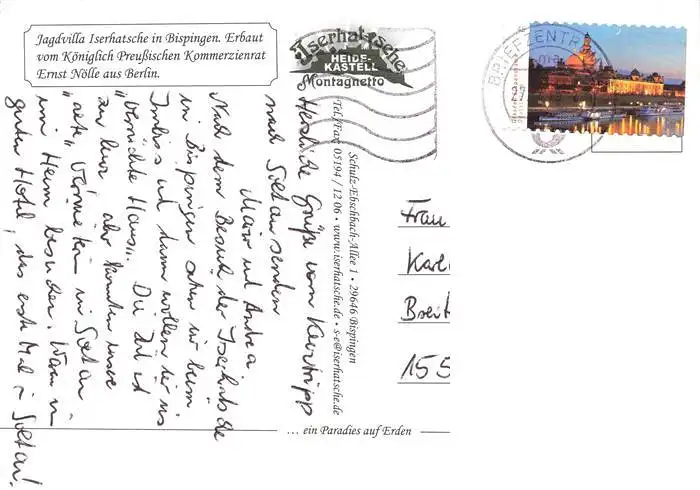 Jagdvilla Iserhatsche in Bispingen. Erbaut
vom Königlich Preußischen Kommerzienrat
Ernst Nölle aus Berlin.
Iserhatsche
HEIDE-
KASTELL
Montagnetto
BRIEFZENTR
Schulz-Ebschbach-Allee 1 • 29646 Bispingen
Tel./Fax: 05194 / 12 06 • www.iserhatsche.de • s-e@iserhatsche.de
... ein Paradies auf Erden
Herzliche Grüße vom Kurztripp
nach Soltau senden
und Andrea
Nach dem Besuch der Iserhatsche
in Bispingen sitzen wir beim
Imbiss und dann wollen wir ins
"verrückte Haus". Die Zeit ist
zu kurz, aber konnten unsere
"alte" in Soltau
im Heim besuchen. Waren in
guten Hotel, das erste Mal in Soltau!
Frau
Karl
Breit
155